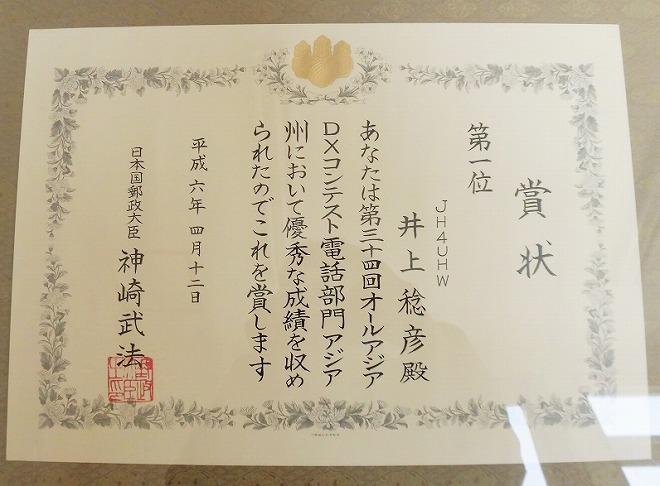 賞状
第一位
JH4UHW
井上稔彦殿
あなたは第三十四回オールアジア
DXコンテスト電話部門アジア
州において優秀な成績を収め
られたのでこれを賞します
平成六年四月十二日
日本国郵政大臣 神崎武法